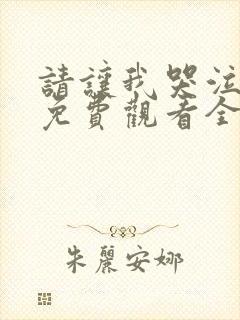 請讓我哭泣
免費觀看全
朱麗安娜